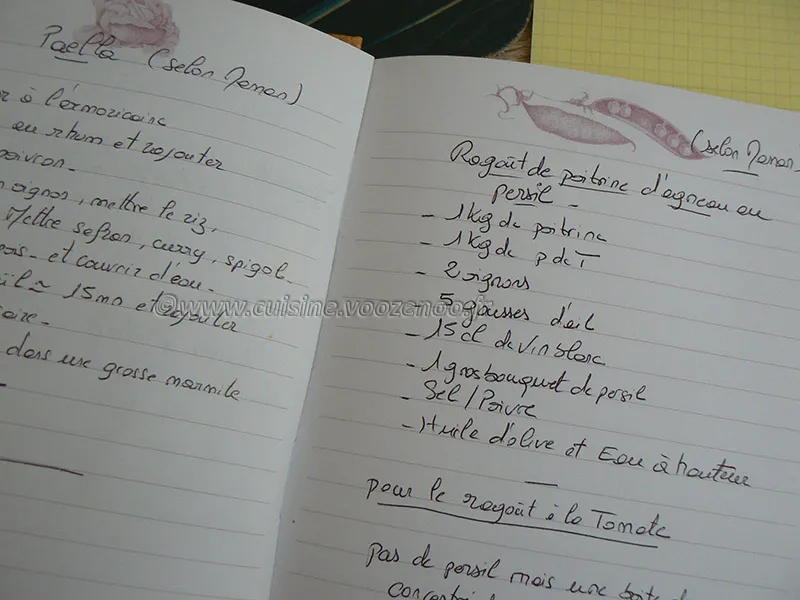 Paella (selon Maman)
à l'armoricaine
au rhum et rajouter
poivron.
oignon, mettre le riz,
Mettre safran, curry, spigol.
et couvrir d'eau.
≈ 15mn et rajouter
dans une grosse marmite
(selon Maman)
Ragoût de poitrine d'agneau au
persil -
- 1kg de poitrine
- 1kg de p de T
- 2 oignons
5 gousses d'ail
- 15 cl de vin blanc
- 1 gros bouquet de persil
- Sel / Poivre
- Huile d'olive et Eau à hauteur
pour le ragoût à la Tomate
pas de persil mais une boite de
©www.cuisine.voozenoo.fr